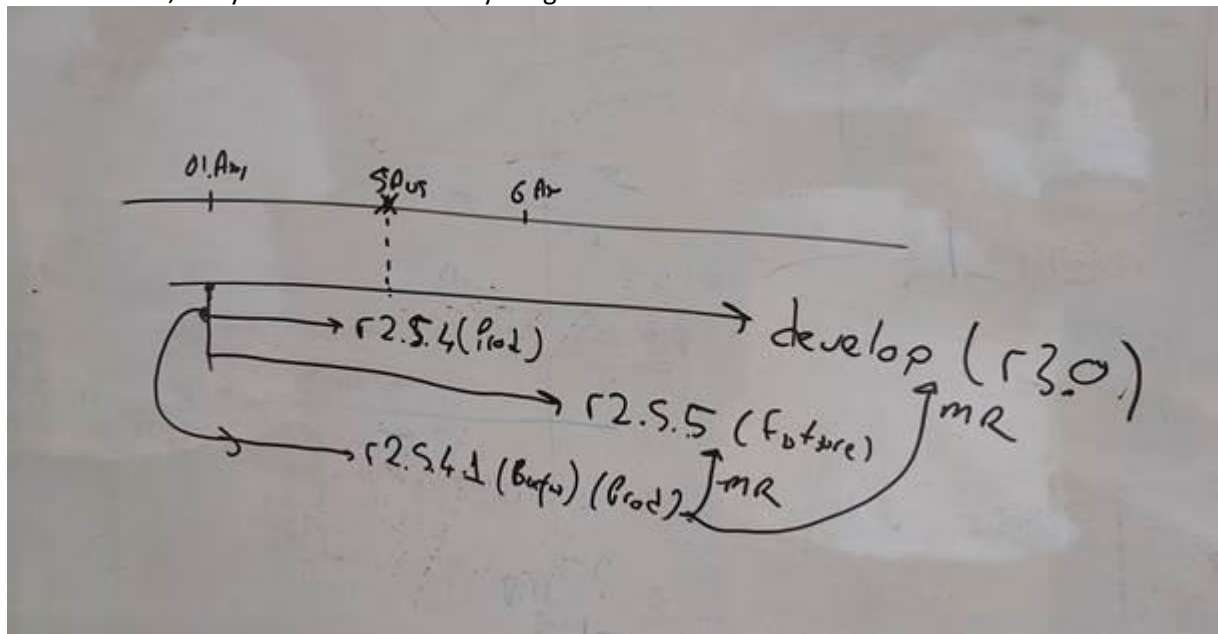 01.Ara
6 Ara
r2.5.4 (Prod)
develop (r3.0)
r2.5.5 (Future)
MR
r2.5.4.1 (Bugfix) (Prod)
MR